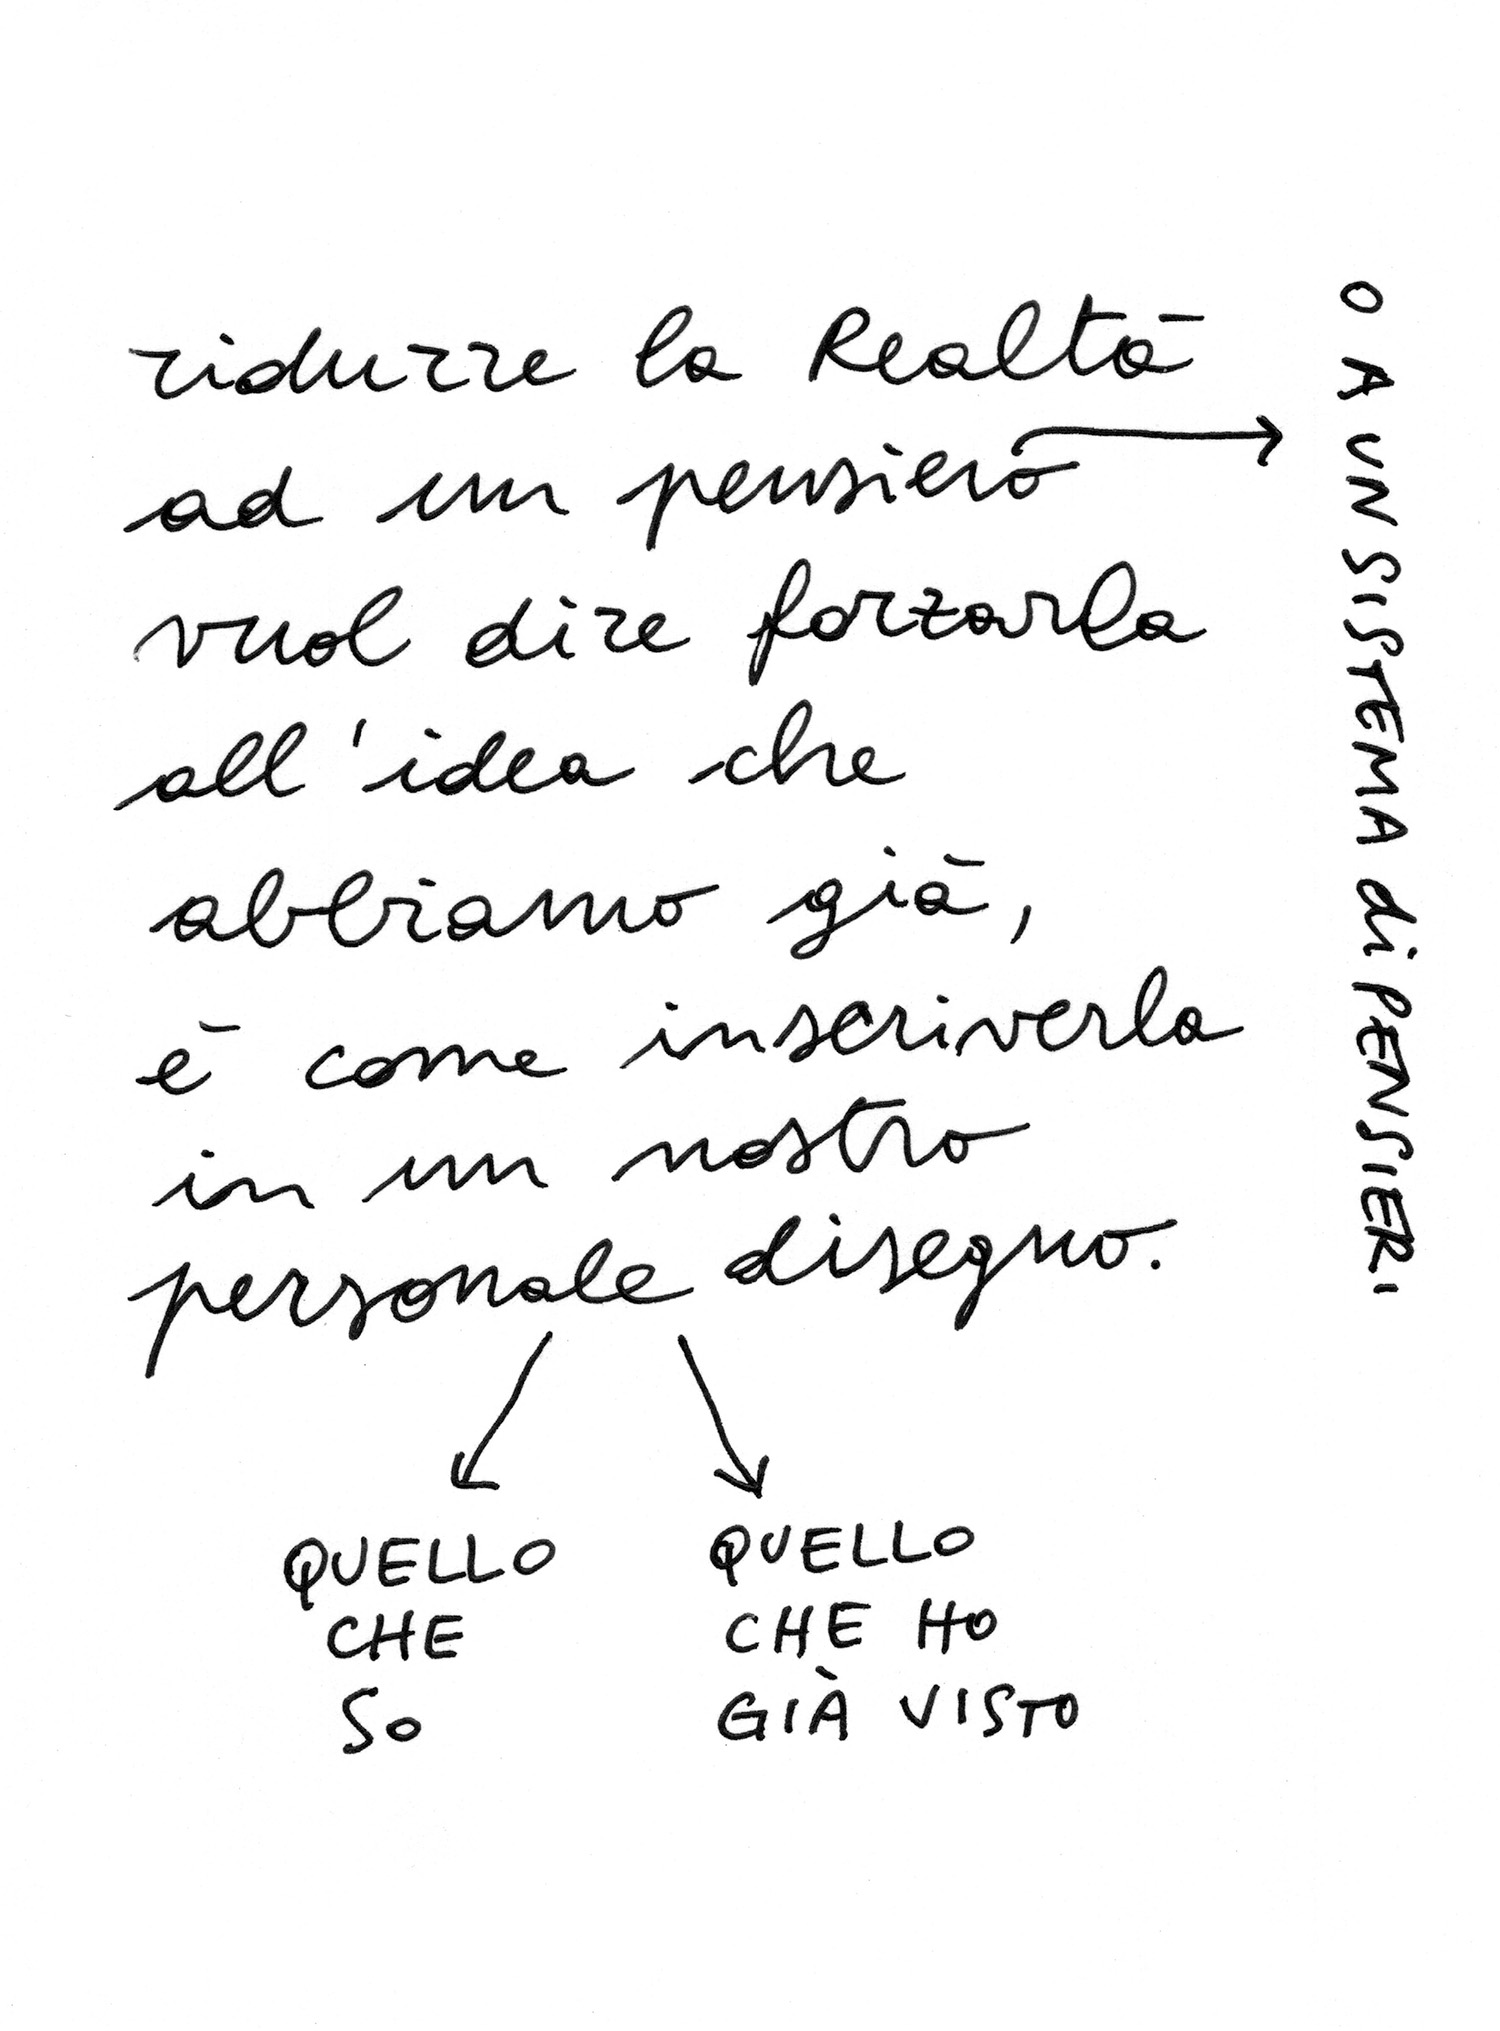 ridurre la Realtà
ad un pensiero
vuol dire forzarla
all'idea che
abbiamo già,
è come inscriverla
in un nostro
personale disegno.
O A UN SISTEMA di PENSIERI
QUELLO
CHE
SO
QUELLO
CHE HO
GIÀ VISTO